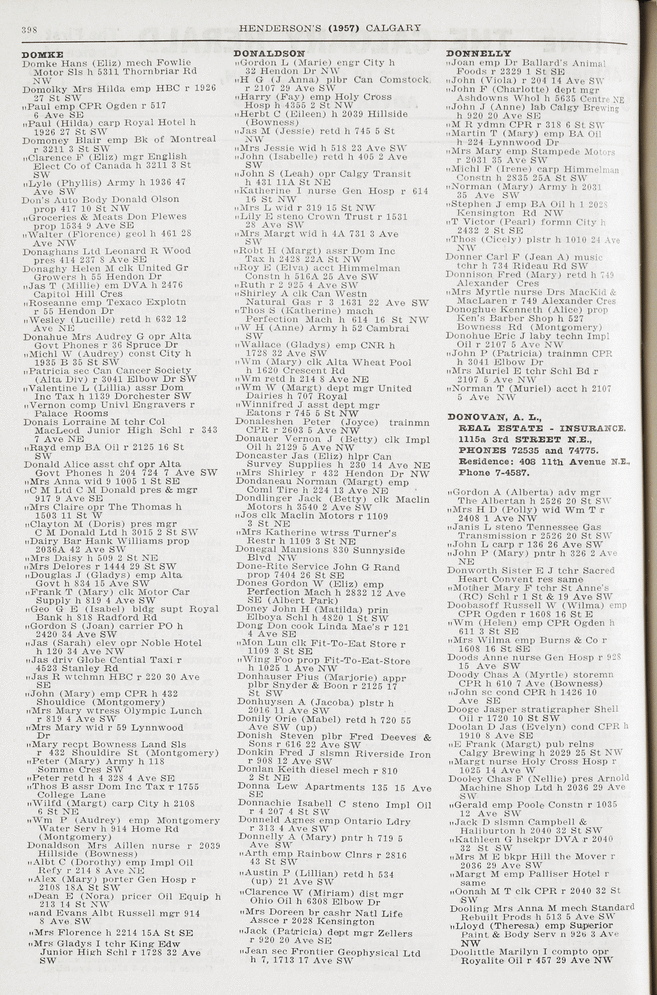 398
HENDERSON'S (1957) CALGARY
DOMKE
Domke Hans (Eliz) mech Fowlie
Motor Sls h 5311 Thornbriar Rd
NW
Domolky Mrs Hilda emp HBC r 1926
27 St SW
„Paul emp CPR Ogden r 517
6 Ave SE
„Paul (Hilda) carp Royal Hotel h
1926 27 St SW
Domoney Blair emp Bk of Montreal
r 3211 3 St SW
„Clarence F (Eliz) mgr English
Elect Co of Canada h 3211 3 St
SW
„Lyle (Phyllis) Army h 1936 47
Ave SW
Don's Auto Body Donald Olson
prop 417 10 St NW
„Groceries & Meats Don Plewes
prop 1534 9 Ave SE
„Walter (Florence) geol h 461 28
Ave NW
Donaghans Ltd Leonard R Wood
pres 414 237 8 Ave SE
Donaghy Helen M clk United Gr
Growers h 55 Hendon Dr
„Jas T (Millie) em DVA h 2476
Capitol Hill Cres
„Roseanne emp Texaco Explotn
r 55 Hendon Dr
„Wesley (Lucille) retd h 632 12
Ave NE
Donahue Mrs Audrey G opr Alta
Govt Phones r 36 Spruce Dr
„Michl W (Audrey) const City h
1935 B 35 St SW
„Patricia sec Can Cancer Society
(Alta Div) r 3041 Elbow Dr SW
„Valentine L (Lillia) assr Dom
Inc Tax h 1139 Dorchester SW
„Vernon comp Univl Engravers r
Palace Rooms
Donais Lorraine M tchr Col
MacLeod Junior High Schl r 343
7 Ave NE
„Rayd emp BA Oil r 2125 16 St
SW
Donald Alice asst chf opr Alta
Govt Phones h 204 724 7 Ave SW
„Mrs Anna wid 9 1005 1 St SE
„C M Ltd C M Donald pres & mgr
917 9 Ave SE
„Mrs Claire opr The Thomas h
1503 11 St W
„Clayton M (Doris) pres mgr
C M Donald Ltd h 3015 2 St SW
„Dairy Bar Hank Williams prop
2036A 42 Ave SW
„Mrs Daisy h 509 2 St NE
„Mrs Delores r 1444 29 St SW
„Douglas J (Gladys) emp Alta
Govt h 834 15 Ave SW
„Frank T (Mary) clk Motor Car
Supply h 819 4 Ave SW
„Geo G E (Isabel) bldg supt Royal
Bank h 818 Radford Rd
„Gordon S (Joan) carrier PO h
2420 34 Ave SW
„Jas (Sarah) elev opr Noble Hotel
h 120 34 Ave NW
„Jas driv Globe Central Taxi r
4523 Stanley Rd
„Jas R wtchmn HBC r 220 30 Ave
SE
„John (Mary) emp CPR h 432
Shouldice (Montgomery)
„Mrs Mary wtress Olympic Lunch
r 819 4 Ave SW
„Mrs Mary wid r 59 Lynnwood
Dr
„Mary recpt Bowness Land Sls
r 432 Shouldire St (Montgomery)
„Peter (Mary) Army h 118
Somme Cres SW
„Peter retd h 4 328 4 Ave SE
„Thos B assr Dom Inc Tax r 1755
College Lane
„Wilfd (Margt) carp City h 2108
6 St NE
„Wm P (Audrey) emp Montgomery
Water Serv h 914 Home Rd
(Montgomery)
Donaldson Mrs Aillen nurse r 2039
Hillside (Bowness)
„Albt C (Dorothy) emp Impl Oil
Refy r 214 8 Ave NE
„Alex (Mary) porter Gen Hosp r
2108 18A St SW
„Dean E (Nora) pricer Oil Equip h
213 14 St NW
„and Evans Albt Russell mgr 914
8 Ave SW
„Mrs Florence h 2214 15A St SE
„Mrs Gladys I tchr King Edw
Junior High Schl r 1728 32 Ave
SW
DONALDSON
„Gordon L (Marie) engr City h
32 Hendon Dr NW
„H G (J Anna) plbr Can Comstock
r 2107 29 Ave SW
„Harry (Fay) emp Holy Cross
Hosp h 4355 2 St NW
„Herbt C (Eileen) h 2039 Hillside
(Bowness)
„Jas M (Jessie) retd h 745 5 St
NW
„Mrs Jessie wid h 518 23 Ave SW
„John (Isabelle) retd h 405 2 Ave
SW
„John S (Leah) opr Calgy Transit
h 431 11A St NE
„Katherine I nurse Gen Hosp r 614
16 St NW
„Mrs L wid r 319 15 St NW
„Lily E steno Crown Trust r 1531
28 Ave SW
„Mrs Margt wid h 4A 731 3 Ave
SW
„Robt H (Margt) assr Dom Inc
Tax h 2428 22A St NW
„Roy E (Elva) acct Himmelman
Constn h 516A 25 Ave SW
„Ruth r 2 925 4 Ave SW
„Shirley A clk Can Westn
Natural Gas r 3 1631 22 Ave SW
„Thos S (Katherine) mach
Perfection Mach h 614 16 St NW
„W H (Anne) Army h 52 Cambrai
SW
„Wallace (Gladys) emp CNR h
1728 32 Ave SW
„Wm (Mary) clk Alta Wheat Pool
h 1620 Crescent Rd
„Wm retd h 214 8 Ave NE
„Wm W (Margt) dept mgr United
Dairies h 707 Royal
„Winnifred J asst dept mgr
Eatons r 745 5 St NW
Donaleshen Peter (Joyce) trainmn
CPR r 2603 5 Ave NW
Donauer Vernon J (Betty) clk Impl
Oil h 2129 5 Ave NW
Doncaster Jas (Eliz) hlpr Can
Survey Supplies h 230 14 Ave NE
„Mrs Shirley r 432 Hendon Dr NW
Dondaneau Norman (Margt) emp
Coml Tire h 224 13 Ave NE
Dondlinger Jack (Betty) clk Maclin
Motors h 3540 2 Ave SW
„Jos clk Maclin Motors r 1109
3 St NE
„Mrs Katherine wtrss Turner's
Restr h 1109 3 St NE
Donegal Mansions 830 Sunnyside
Blvd NW
Done-Rite Service John G Rand
prop 7404 26 St SE
Dones Gordon W (Eliz) emp
Perfection Mach h 2832 12 Ave
SE (Albert Park)
Doney John H (Matilda) prin
Elboya Schl h 4820 1 St SW
Dong Don cook Linda Mae's r 121
4 Ave SE
„Mon Lun clk Fit-To-Eat Store r
1109 3 St SE
„Wing Foo prop Fit-To-Eat-Store
h 1025 1 Ave NW
Donhauser Pius (Marjorie) appr
plbr Snyder & Boon r 2125 17
St SW
Donhuysen A (Jacoba) plstr h
2016 11 Ave SW
Donily Orie (Mabel) retd h 720 55
Ave SW (up)
Donish Steven plbr Fred Deeves &
Sons r 616 22 Ave SW
Donkin Fred J slsmn Riverside Iron
r 908 12 Ave SW
Donlan Keith diesel mech r 810
2 St NE
Donna Lew Apartments 135 15 Ave
SE
Donnachie Isabell C steno Impl Oil
r 4 207 4 St SW
Donneld Agnes emp Ontario Ldry
r 313 4 Ave SW
Donnelly A (Mary) pntr h 719 5
Ave SW
„Arth emp Rainbow Clnrs r 2816
43 St SW
„Austin P (Lillian) retd h 534
(up) 21 Ave SW
„Clarence W (Miriam) dist mgr
Ohio Oil h 6308 Elbow Dr
„Mrs Doreen br cashr Natl Life
Assce r 2028 Kensington
„Jack (Patricia) dept mgr Zellers
r 920 20 Ave SE
„Jean sec Frontier Geophysical Ltd
h 7, 1713 17 Ave SW
DONNELLY
„Joan emp Dr Ballard's Animal
Foods r 2329 1 St SE
„John (Viola) r 204 14 Ave SW
„John F (Charlotte) dept mgr
Ashdowns Whol h 5635 Centre NE
„John J (Anne) lab Calgy Brewing
h 920 20 Ave SE
„M R ydmn CPR r 318 6 St SW
„Martin T (Mary) emp BA Oil
h 224 Lynnwood Dr
„Mrs Mary emp Stampede Motors
r 2031 35 Ave SW
„Michl F (Irene) carp Himmelman
Constn h 2835 25A St SW
„Norman (Mary) Army h 2031
35 Ave SW
„Stephen J emp BA Oil h 1 2028
Kensington Rd NW
„T Victor (Pearl) formn City h
2432 2 St SE
„Thos (Cicely) plstr h 1010 24 Ave
NW
Donner Carl F (Jean A) music
tchr h 734 Rideau Rd SW
Dennison Fred (Mary) retd h 749
Alexander Cres
„Mrs Myrtle nurse Drs MacKid &
MacLaren r 749 Alexander Cres
Donoghue Kenneth (Alice) prop
Ken's Barber Shop h 527
Bowness Rd (Montgomery)
Donohue Eric J laby techn Impl
Oil r 2107 5 Ave NW
„John P (Patricia) trainmn CPR
h 3041 Elbow Dr
„Mrs Muriel E tchr Schl Bd r
2107 5 Ave NW
„Norman T (Muriel) acct h 2107
5 Ave NW
DONOVAN, A. L.,
REAL ESTATE - INSURANCE.
1115a 3rd STREET N.E.,
PHONES 72535 and 74775.
Residence: 408 11th Avenue N.E.,
Phone 7-4587.
„Gordon A (Alberta) adv mgr
The Albertan h 2526 20 St SW
„Mrs H D (Polly) wid Wm T r
2408 1 Ave NW
„Janis L steno Tennessee Gas
Transmission r 2526 20 St SW
„John L carp r 136 26 Ave SW
„John P (Mary) pntr h 326 2 Ave
NE
Donworth Sister E J tchr Sacred
Heart Convent res same
„Mother Mary F tchr St Anne's
(RC) Schl r 1 St & 19 Ave SW
Doobasoff Russell W (Wilma) emp
CPR Ogden r 1608 16 St E
„Wm (Helen) emp CPR Ogden h
611 3 St SE
„Mrs Wilma emp Burns & Co r
1608 16 St SE
Doods Anne nurse Gen Hosp r 928
15 Ave SW
Doody Chas A (Myrtle) storemn
CPR h 610 7 Ave (Bowness)
„John sc cond CPR h 1426 10
Ave SE
Dooge Jasper stratigrapher Shell
Oil r 1720 10 St SW
Doolan D Jas (Evelyn) cond CPR h
1910 8 Ave SE
„E Frank (Margt) pub relns
Calgy Brewing h 2029 25 St NW
„Margt nurse Holy Cross Hosp r
1025 14 Ave W
Dooley Chas F (Nellie) pres Arnold
Machine Shop Ltd h 2036 29 Ave
SW
„Gerald emp Poole Constn r 1035
12 Ave SW
„Jack D slsmn Campbell &
Haliburton h 2040 32 St SW
„Kathleen G hsekpr DVA r 2040
32 St SW
„Mrs M E bkpr Hill the Mover r
2036 29 Ave SW
„Margt M emp Palliser Hotel r
same
„Oonah M T clk CPR r 2040 32 St
SW
Dooling Mrs Anna M mech Standard
Rebuilt Prods h 513 5 Ave SW
„Lloyd (Theresa) emp Superior
Paint & Body Serv n 926 3 Ave
NW
Doolittle Marilyn I compto opr
Royalite Oil r 457 29 Ave NW